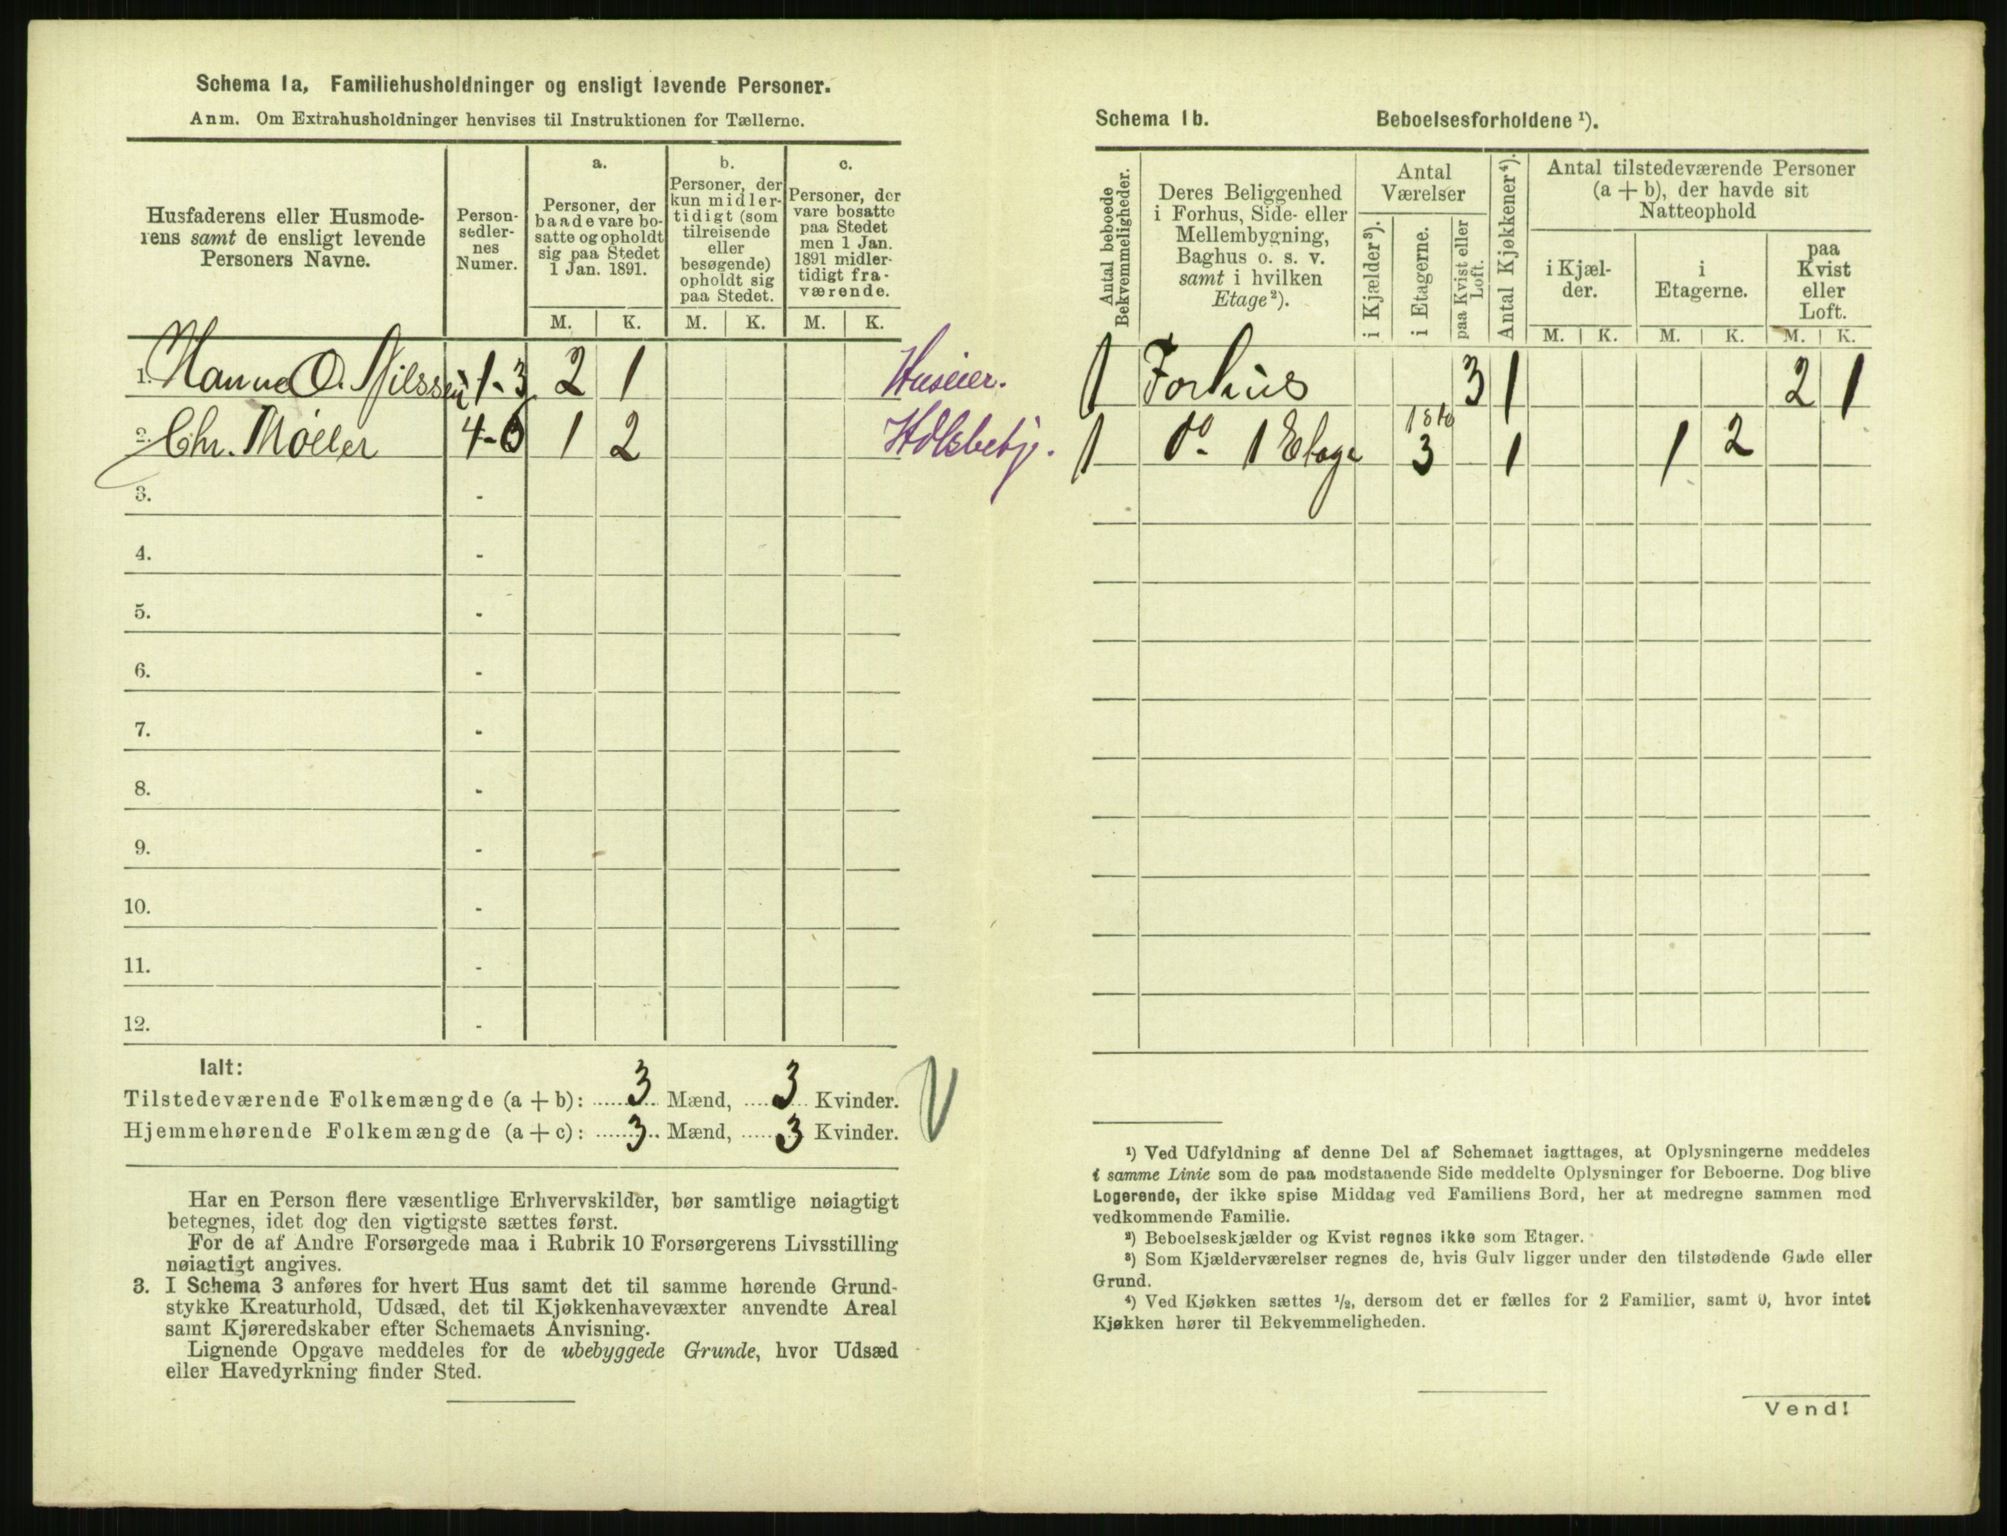 Schema 1a, Familiehusholdninger og ensligt levende Personer.
Anm. Om Extrahusholdninger henvises til Instruktionen for Tællerne.
Husfaderens eller Husmode-
rens samt de ensligt levende
Personers Navne.
Person-
sedler-
nes
Numer.
a.
Personer, der
baade vare bo-
satte og opholdt
sig paa Stedet
1 Jan. 1891.
b.
Personer, der
kun midler-
tidigt (som
tilreisende
eller
besøgende)
opholdt sig
paa Stedet.
c.
Personer, der
vare bosatte
paa Stedet
men 1 Jan.
1891 midler-
tidigt fra-
værende.
M. K. M. K. M. K.
1. Hanna O. Nilssen 1-3 2 1 Huseier.
2. Chr. Møller 4-6 1 2
3. -
4. -
5. -
6. -
7. -
8. -
9. -
10. -
11. -
12. -
Ialt:
Tilstedeværende Folkemængde (a + b): 3 Mænd, 3 Kvinder.
Hjemmehørende Folkemængde (a + c): 3 Mænd, 3 Kvinder.
Har en Person flere væsentlige Erhvervskilder, bør samtlige nøiagtigt
betegnes, idet dog den vigtigste sættes først.
For de af Andre Forsørgede maa i Rubrik 10 Forsørgerens Livsstilling
nøiagtigt angives.
3. I Schema 3 anføres for hvert Hus samt det til samme hørende Grund-
stykke Kreaturhold, Udsæd, det til Kjøkkenhavevæxter anvendte Areal
samt Kjøreredskaber efter Schemaets Anvisning.
Lignende Opgave meddeles for de ubebyggede Grunde, hvor Udsæd
eller Havedyrkning finder Sted.
Schema 1b. Beboelsesforholdene ¹).
Antal beboede
Bekvemmeligheder.
Deres Beliggenhed
i Forhus, Side- eller
Mellembygning,
Baghus o. s. v.
samt i hvilken
Etage²).
Antal
Værelser
i Kjælder³).
i Etagerne.
paa Kvist eller
Loft.
Antal Kjøkkener⁴).
Antal tilstedeværende Personer
(a + b), der havde sit
Natteophold
i Kjæl-
der.
i
Etagerne.
paa
Kvist
eller
Loft.
M. K. M. K. M. K.
1 Forhus 3 1 2 1
1 do 1 Etage 3 1 1 2
¹) Ved Udfyldning af denne Del af Schemaet iagttages, at Oplysningerne meddeles
i samme Linie som de paa modstaaende Side meddelte Oplysninger for Beboerne. Dog blive
Logerende, der ikke spise Middag ved Familiens Bord, her at medregne sammen med
vedkommende Familie.
²) Beboelseskjælder og Kvist regnes ikke som Etager.
³) Som Kjælderværelser regnes de, hvis Gulv ligger under den tilstødende Gade eller
Grund.
⁴) Ved Kjøkken sættes ½, dersom det er fælles for 2 Familier, samt 0, hvor intet
Kjøkken hører til Bekvemmeligheden.
Vend!